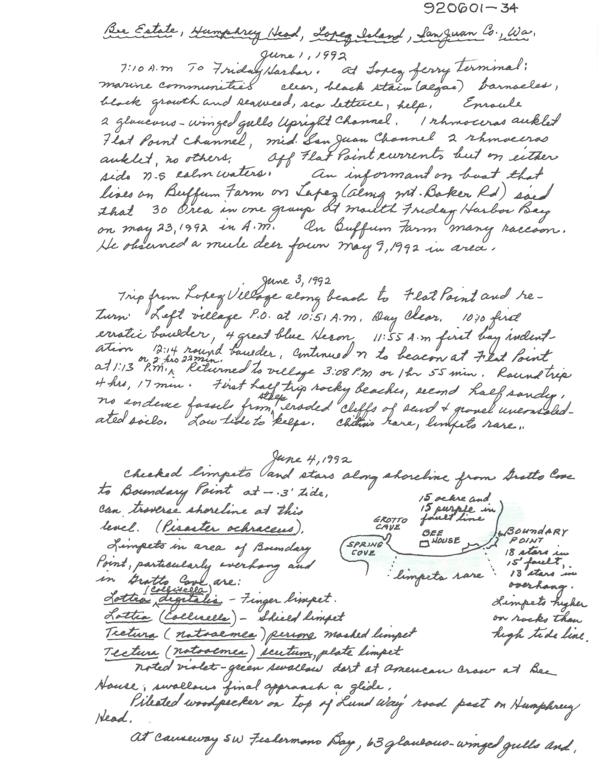 920601-34
Bee Estate, Humphrey Head, Lopez Island, San Juan Co., Wa.
June 1, 1992
7:10 A.M. To Friday Harbor. At Lopez ferry terminal:
marine communities clear, black stain (algae) barnacles,
black growth and seaweed, sea lettuce, kelp. Enroute
2 glaucous-winged gulls Upright Channel. 1 rhinoceros auklet
Flat Point Channel, mid. San Juan Channel 2 rhinoceros
auklet, no others. Off Flat Point currents but on either
side N.S calm waters. An informant on boat that
lives on Buffum Farm on Lopez (along Mt. Baker Rd) said
that 30 Orca in one group at mouth Friday Harbor Bay
on May 23, 1992 in A.M. On Buffum Farm many raccoon.
He observed a mule deer fawn May 9, 1992 in area.
June 3, 1992
Trip from Lopez Village along beach to Flat Point and re-
turn. Left village P.O. at 10:51 A.M. Day Clear. first
erratic boulder, 4 great blue Heron 11:55 A.M first bay indent-
ation 12:14 round boulder, continued N to beacon at Flat Point
or 2 hrs 22 min.
at 1:13 P.M. Returned to village 3:08 P.M or 1 hr 55 min. Round trip
4 hrs, 17 min. First half trip rocky beaches, second half sandy,
no evidence fossils from steep eroded cliffs of sand & gravel unconsolid-
ated soils. Low tide to kelps. chitins rare, limpets rare..
June 4, 1992
Checked limpets and stars along shoreline from Grotto Cove
to Boundary Point at -.3' tide,
can traverse shoreline at this
level. (Pisaster ochraceus).
Limpets in area of Boundary
Point, particularly overhang and
in Grotto Cove are:
(Collisella)
Lottia digitalis - Finger limpet.
Lottia (Collisella) - Shield limpet
Tectura (notoacmea) persona masked limpet
Tectura (notoacmea) scutum, plate limpet
15 ochre and
15 purple in
fault line
GROTTO
CAVE
BEE
HOUSE
SPRING
COVE
limpets rare
BOUNDARY
POINT
18 stars in
15' fault,
13 stars in
overhang.
Limpets higher
on rocks than
high tide line.
Noted violet-green swallow dart at American Crow at Bee
House, swallows final approach a glide.
Pileated woodpecker on top of 'Lund Way' road post on Humphrey
Head.
At Causeway SW Fishermans Bay, 63 glaucous-winged gulls and,